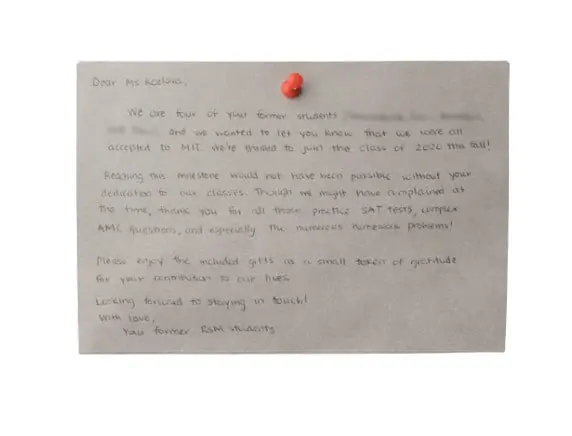 Dear Ms Kozlova,
We are four of your former students
and we wanted to let you know that we were all
accepted to MIT. We're thrilled to join the class of 2026 this fall!
Reaching this milestone would not have been possible without your
dedication to our classes. Though we might have complained at
the time, thank you for all those practice SAT tests, complex
AMC questions, and especially the numerous homework problems!
Please enjoy the included gifts as a small token of gratitude
for your contribution to our lives.
Looking forward to staying in touch!
With love,
Your former RSM students